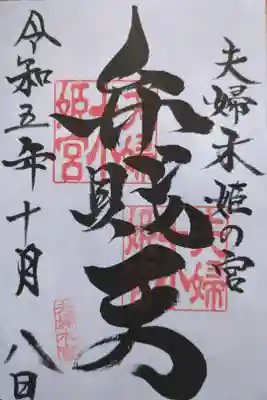 夫婦木姫の宮
弁財天
令和五年十月八日